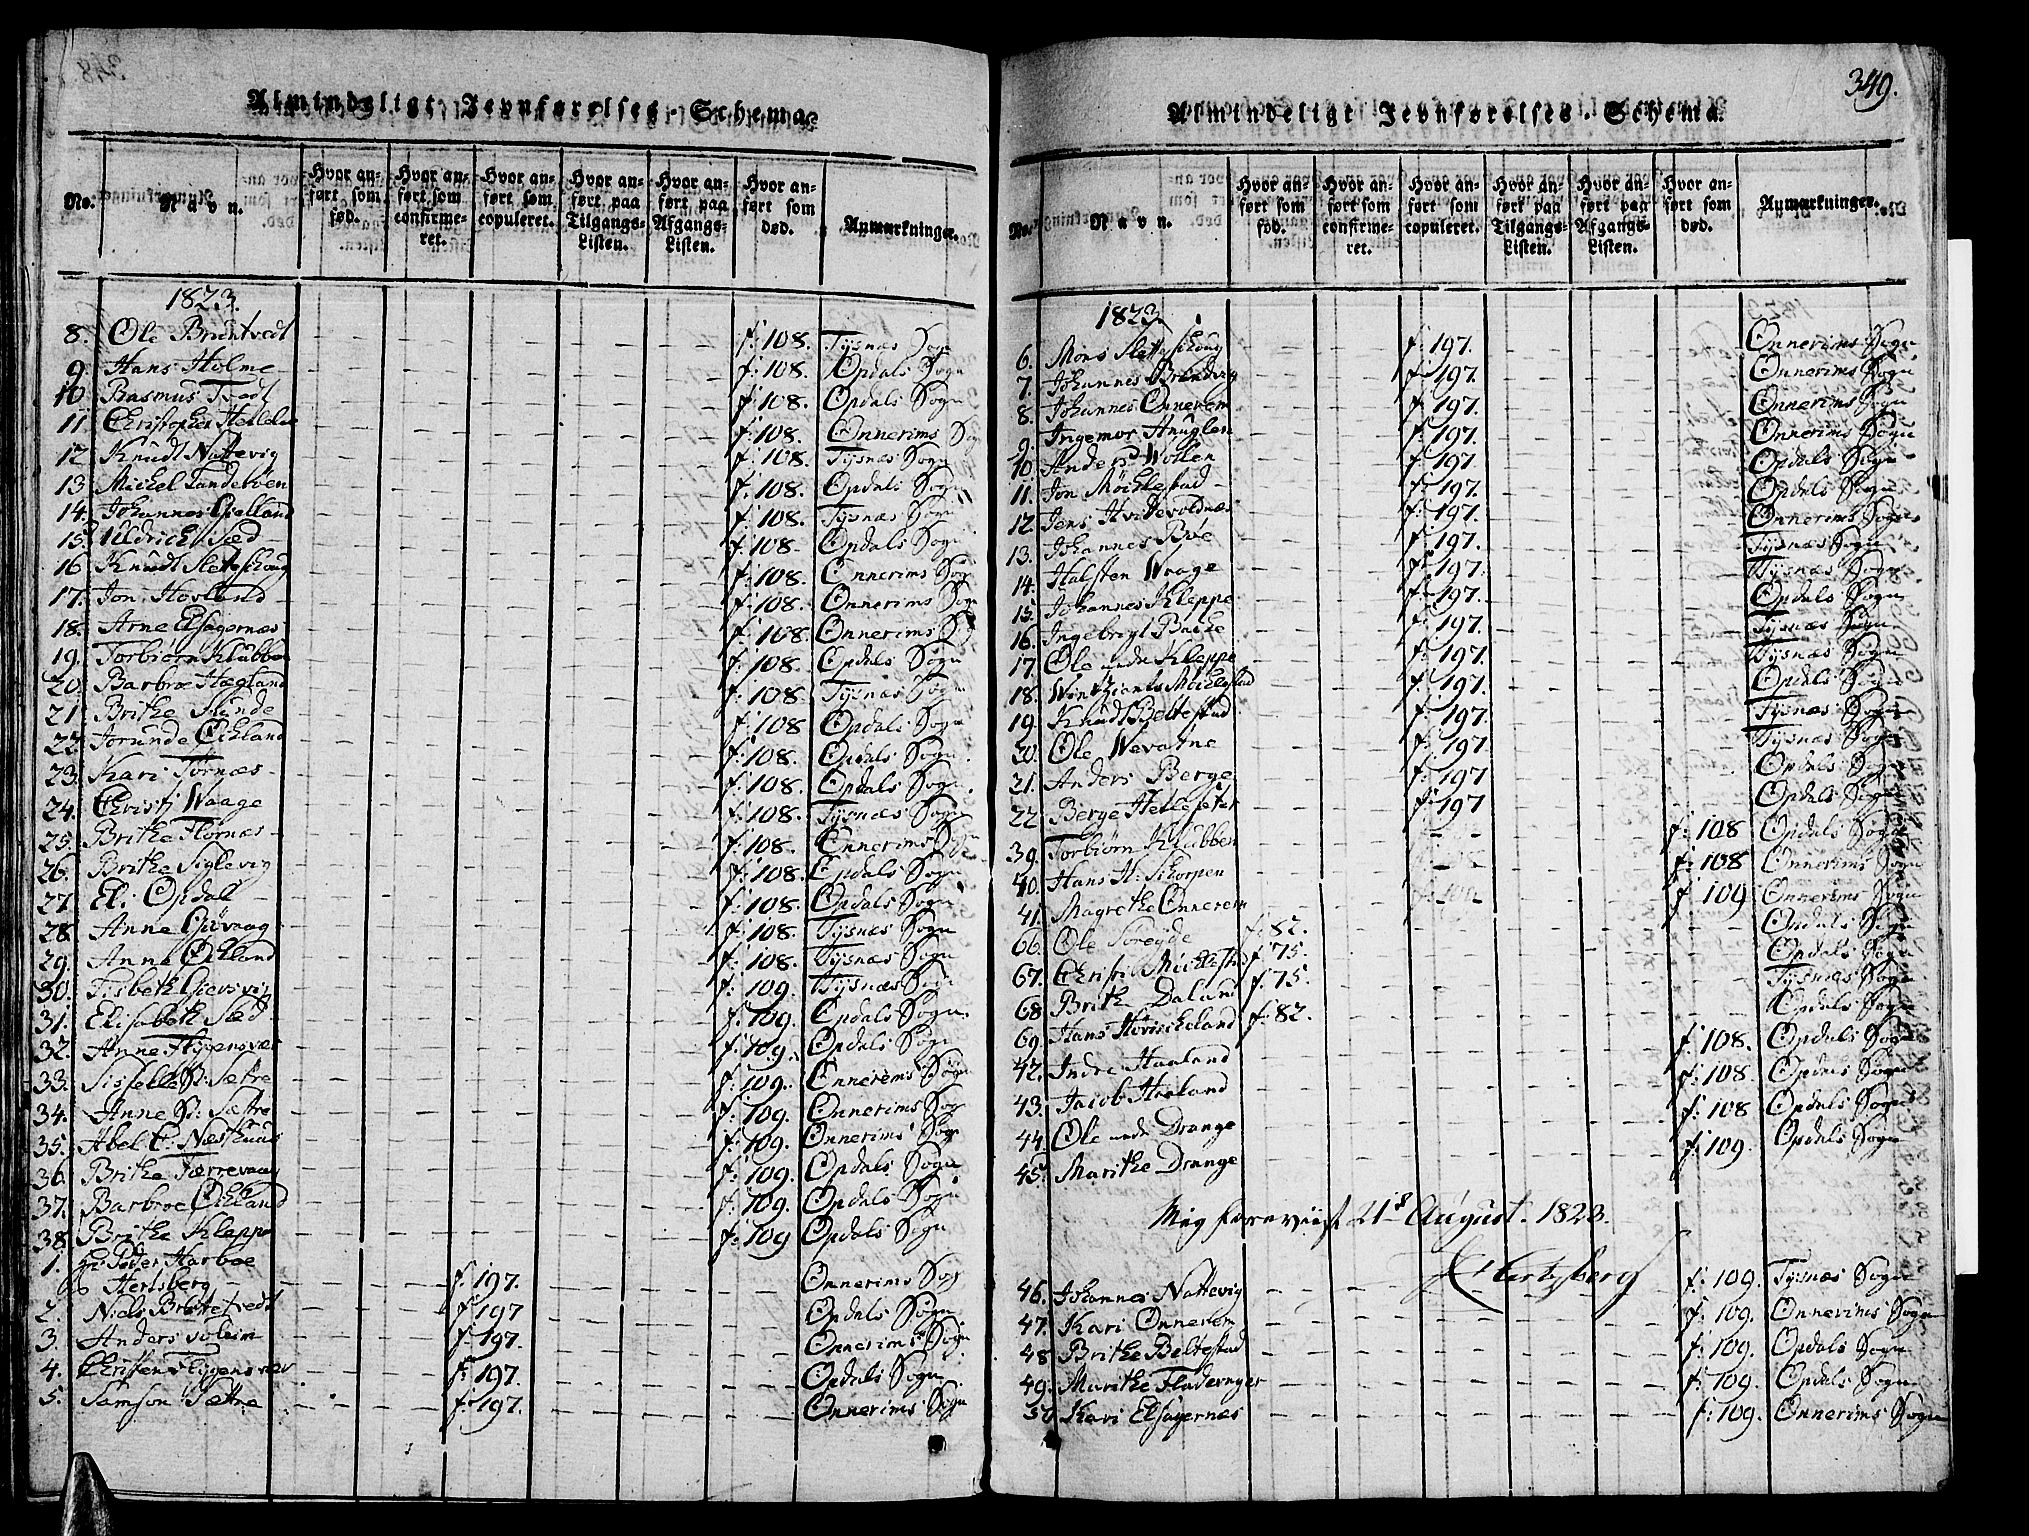 Almindeligt Jevnførelses-Schema.
No. Navn. Hvor anført som fød. Hvor anført som confirmeret. Hvor anført som copuleret. Hvor anført paa Tilgangs-Listen. Hvor anført paa Afgangs-Listen. Hvor anført som død. Anmærkninger.
1823.
8. Ole Bruntvedt f: 108. Tysnæs Sogn
9. Hans Holme f: 108. Opdals Sogn
10 Rasmus Tvedt f: 108. Opdals Sogn
11. Christopher f: 108. Onnerims Sogn
12 Knudt Nattevig f: 108. Tysnæs Sogn
13 Michel Landeböen f: 108. Opdals Sogn
14. Johannes Gielland f: 108. Tysnæs Sogn
15. Uldrich Sæd f: 108. Opdals Sogn
16 Knudt Sletteschoug f: 108. Onnerims Sogn
17. Jon Hovland f: 108. Onnerims Sogn
18. Arne Elsagernæs f: 108. Onnerims S
19. Torbiörn Klubben f: 108. Opdals Sogn
20. Barbroe Hægland f: 108. Tysnæs Sogn
21. Brithe Sunde f: 108 Opdals Sogn
22. Jorunde Ekland f: 108. Opdals Sogn
23. Kari Tornæs f: 108. Opdals Sogn
24. Christi Waage f: 108. Tysnæs Sogn
25. Brithe Flornæs f: 108. Onnerims Sogn
26. Brithe Siglevig f: 108. Opdals Sogn
27. Eli Opdal f: 108. Opdals Sogn
28. Anne Gjövaag f: 108. Tysnæs Sogn
29. Anne Økland f: 108. Tysnæs Sogn
30. Lisbeth Giersvig f: 109. Tysnæs Sogn
31. Elisabeth Sæd f: 109. Opdals Sogn
32. Anne Flygensvær f: 109. Opdals Sogn
33. Sisselle S: Sætre f: 109. Onnerems Sogn
34. Anne S: Sætre f: 109. Onnerims Sogn
35. Abel C: Næshuus f: 109. Onnerims Sogn
36. Brithe Færrevaag f: 109. Opdals Sogn
37. Barbroe Økland f: 109. Opdals Sogn
38. Brithe Kleppe f: 109 Opdals Sogn
1. Hr: Peder Harboe
Hertsberg f: 197. Onnerims Sog
2. Niels Brutvedt f: 197 Opdals Sogn
3. Anders f: 197. Onnerims Sogn
4. Christen Flygensvær f: 197. Opdals Sogn
5. Samson Sætre f: 197. Onnerims Sogn
349.
Almindeligt Jevnførelses-Schema.
No. Navn. Hvor anført som fød. Hvor anført som confirmeret. Hvor anført som copuleret. Hvor anført paa Tilgangs-Listen. Hvor anført paa Afgangs-Listen. Hvor anført som død. Anmærkninger.
1823
6. Mons Sletteschoug f: 197. Onnerims Sogn
7. Johannes Brandvig f: 197. Onnerims Sogn
8. Johannes Onnerem f: 197. Onnerims Sogn
9. Ingemor Hnuglen f: 197. Onnerims Sogn
10. Anders Wollen f: 197. Opdals Sogn
11. Jon Möchlestad f: 197. Opdals Sogn
12 Jens Hvidevoldnæs f: 197. Onnerims Sogn
13. Johannes Böe f: 197. Tysnæs Sogn
14. Halsten Waage f: 197. Tysnæs Sogn
15. Johannes Kleppe f: 197. Opdals Sogn
16. Ingebrigt Bache f: 197. Tysnæs Sogn
17. Ole Kleppe f: 197. Tysnæs Sogn
18. Möchlestad f: 197. Opdals Sogn
19. Knudt Beltestad f: 197. Tysnæs Sogn
20. Ole Wevatne f: 197. Tysnæs Sogn
21. Anders Berge f: 197 Opdals Sogn
22 Berge f: 197 Opdals Sogn
39. Torbiörn Klubben f: 108 Opdals Sogn
40. Hans H: Skorpen f: 108 Onnerims Sogn
41. Magrethe Onnerem f: 109 Onnerims Sogn
66. Ole Söreyde f: 82. Opdals Sogn
67. Christi Möchlestad f: 75. Opdals Sogn
68 Brithe Daland f: 75. Tysnæs Sogn
69. Hans f: 82. Opdals Sogn
42. Indre Haaland f: 108. Opdals Sogn
43. Jacob Haaland f: 108. Opdals Sogn
44. Ole Drange f: 108 Opdals Sogn
45. Marithe Drange f: 109. Opdals Sogn
Mig foreviist 21de August. 1823.
Hertzberg
46. Johannes Nattevig f: 109. Tysnæs Sogn
47. Kari Onnerem f: 109. Onnerims Sogn
48 Brithe Beltestad f: 109. Opdals Sogn
49. Marithe Fladernger f: 109. Opdals Sogn
50 Kari Elsagernæs f: 109. Onnerims Sogn